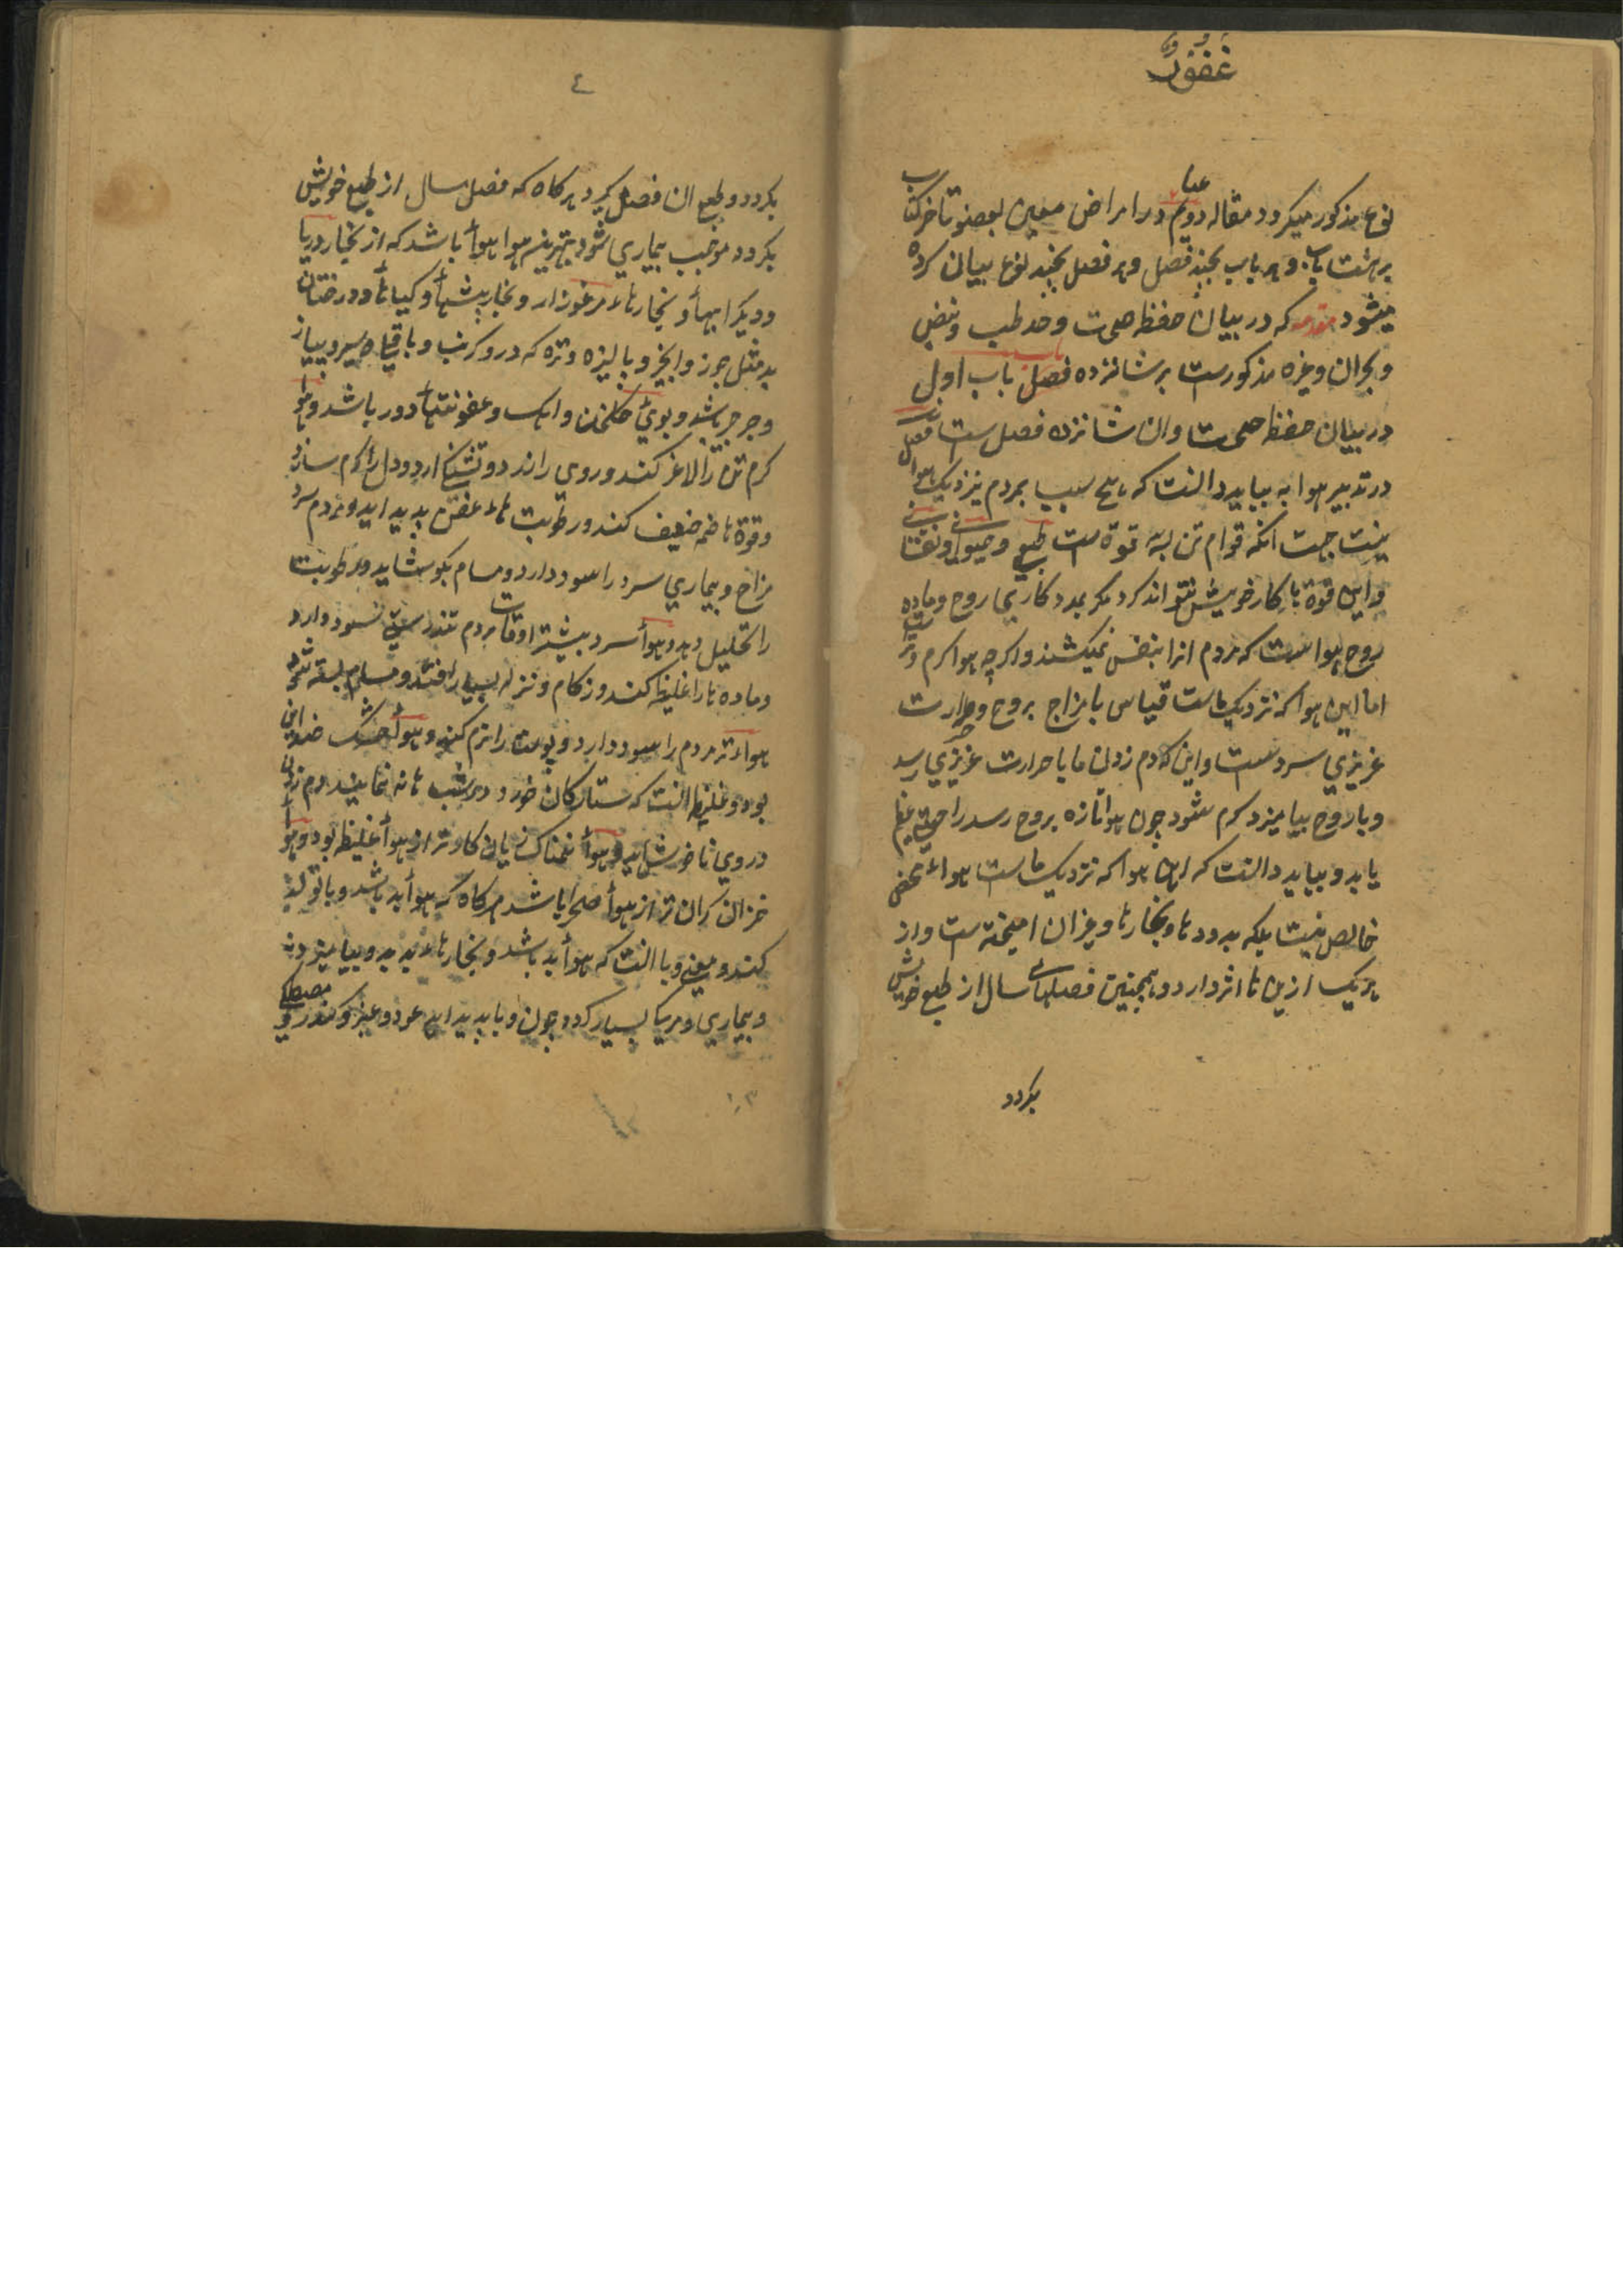 غفور
نوع مذکور میکردد مقاله دویم در امراض معین بعضو تا آخر کتاب
بر هشت باب و هر باب بچند فصل و هر فصل بچند نوع بیان کرده
میشود مقدمه که در بیان حفظ صحت و حد طب و نبض
و بحران و غیره مذکورست بر شانزده فصل باب اول
در بیان حفظ صحت و ان شانزده فصل ست فصل اول
در تدبیر هوا بباید دانست که هیچ سبب بمردم نزدیک
نیست جهت انکه قوام تن بسه قوة ست طبیعی و حیوانی و نفسانی
و این قوة ها کار خویش نتواند کرد مکر بمدد کاری روح و ماده
روح هواست که مردم انرا بنفس میکشند و اکرچه هوا کرم و ترست
اما این هوا که نزدیک ماست قیاس با مزاج روح و حرارت
غریزی سردست و این که دم زدن ما با حرارت غریزی رسد
و با روح بیامیزد کرم شود چون هوا تازه بروح رسد راحتی عظیم
یابد و بباید دانست که این هوا که نزدیک ماست هواء محض
خالص نیست بلکه بدودها و بخارها و غیر ان امیخته ست و از
هر یک ازین ها اثر دارد و همچنین فصلهای سال از طبع خویش
بکردد
٤
بکردد و طبع ان فصل کیرد هرکاه که فصل سال از طبع خویش
بکردد موجب بیماری شود بهترین هوا هوأ باشد که از بخار دریا
و دیکر ابها و بخارهاء مرغزار و بخار بیشها و کیاها و درختان
بد مثل جوز و انجیر و پالیزه و تره که درو کرنب و باقلا و سیر و پیاز
و جرجیر باشد و بوی کلخن و اهک و عفونتها دور باشد و هوأ
کرم تن را لاغر کند و روی را زرد و تشنکی ارد و دل را کرم سازد
و قوة هاضمه ضعیف کند و رطوبت هاء عفن پدید اید و مردم سرد
مزاج و بیماری سرد را سود دارد و مسام بکوشاید و رطوبت
را تحلیل دهد و هوأ سرد بیشتر اوقات مردم تندرست سود دارد
و ماده ها را غلیظ کند و زکام و نزله بسیار افتد و مسام بسته شود
هواء تر مردم را سود دارد و پوست را نرم کند و هوأ خشک ضد این
بود و غلیظ انست که ستارکان خرد در شب ها نه نمایند و دم زدن
در وی ناخوش اید و هوأ نمناک زیان کارتر از هوأ غلیظ بود و هوأ
خزان کران تر از هوأ صحرا باشد هرکاه که هوأ بد باشد وبا تولد
کند و معنی وبا انست که هوأ بد باشد و بخارهاء بد بدو بیامیزد
و بیماری و مرک بسیار کردد چون وبا پدید اید عود و عنبر و کندر و مصطکی